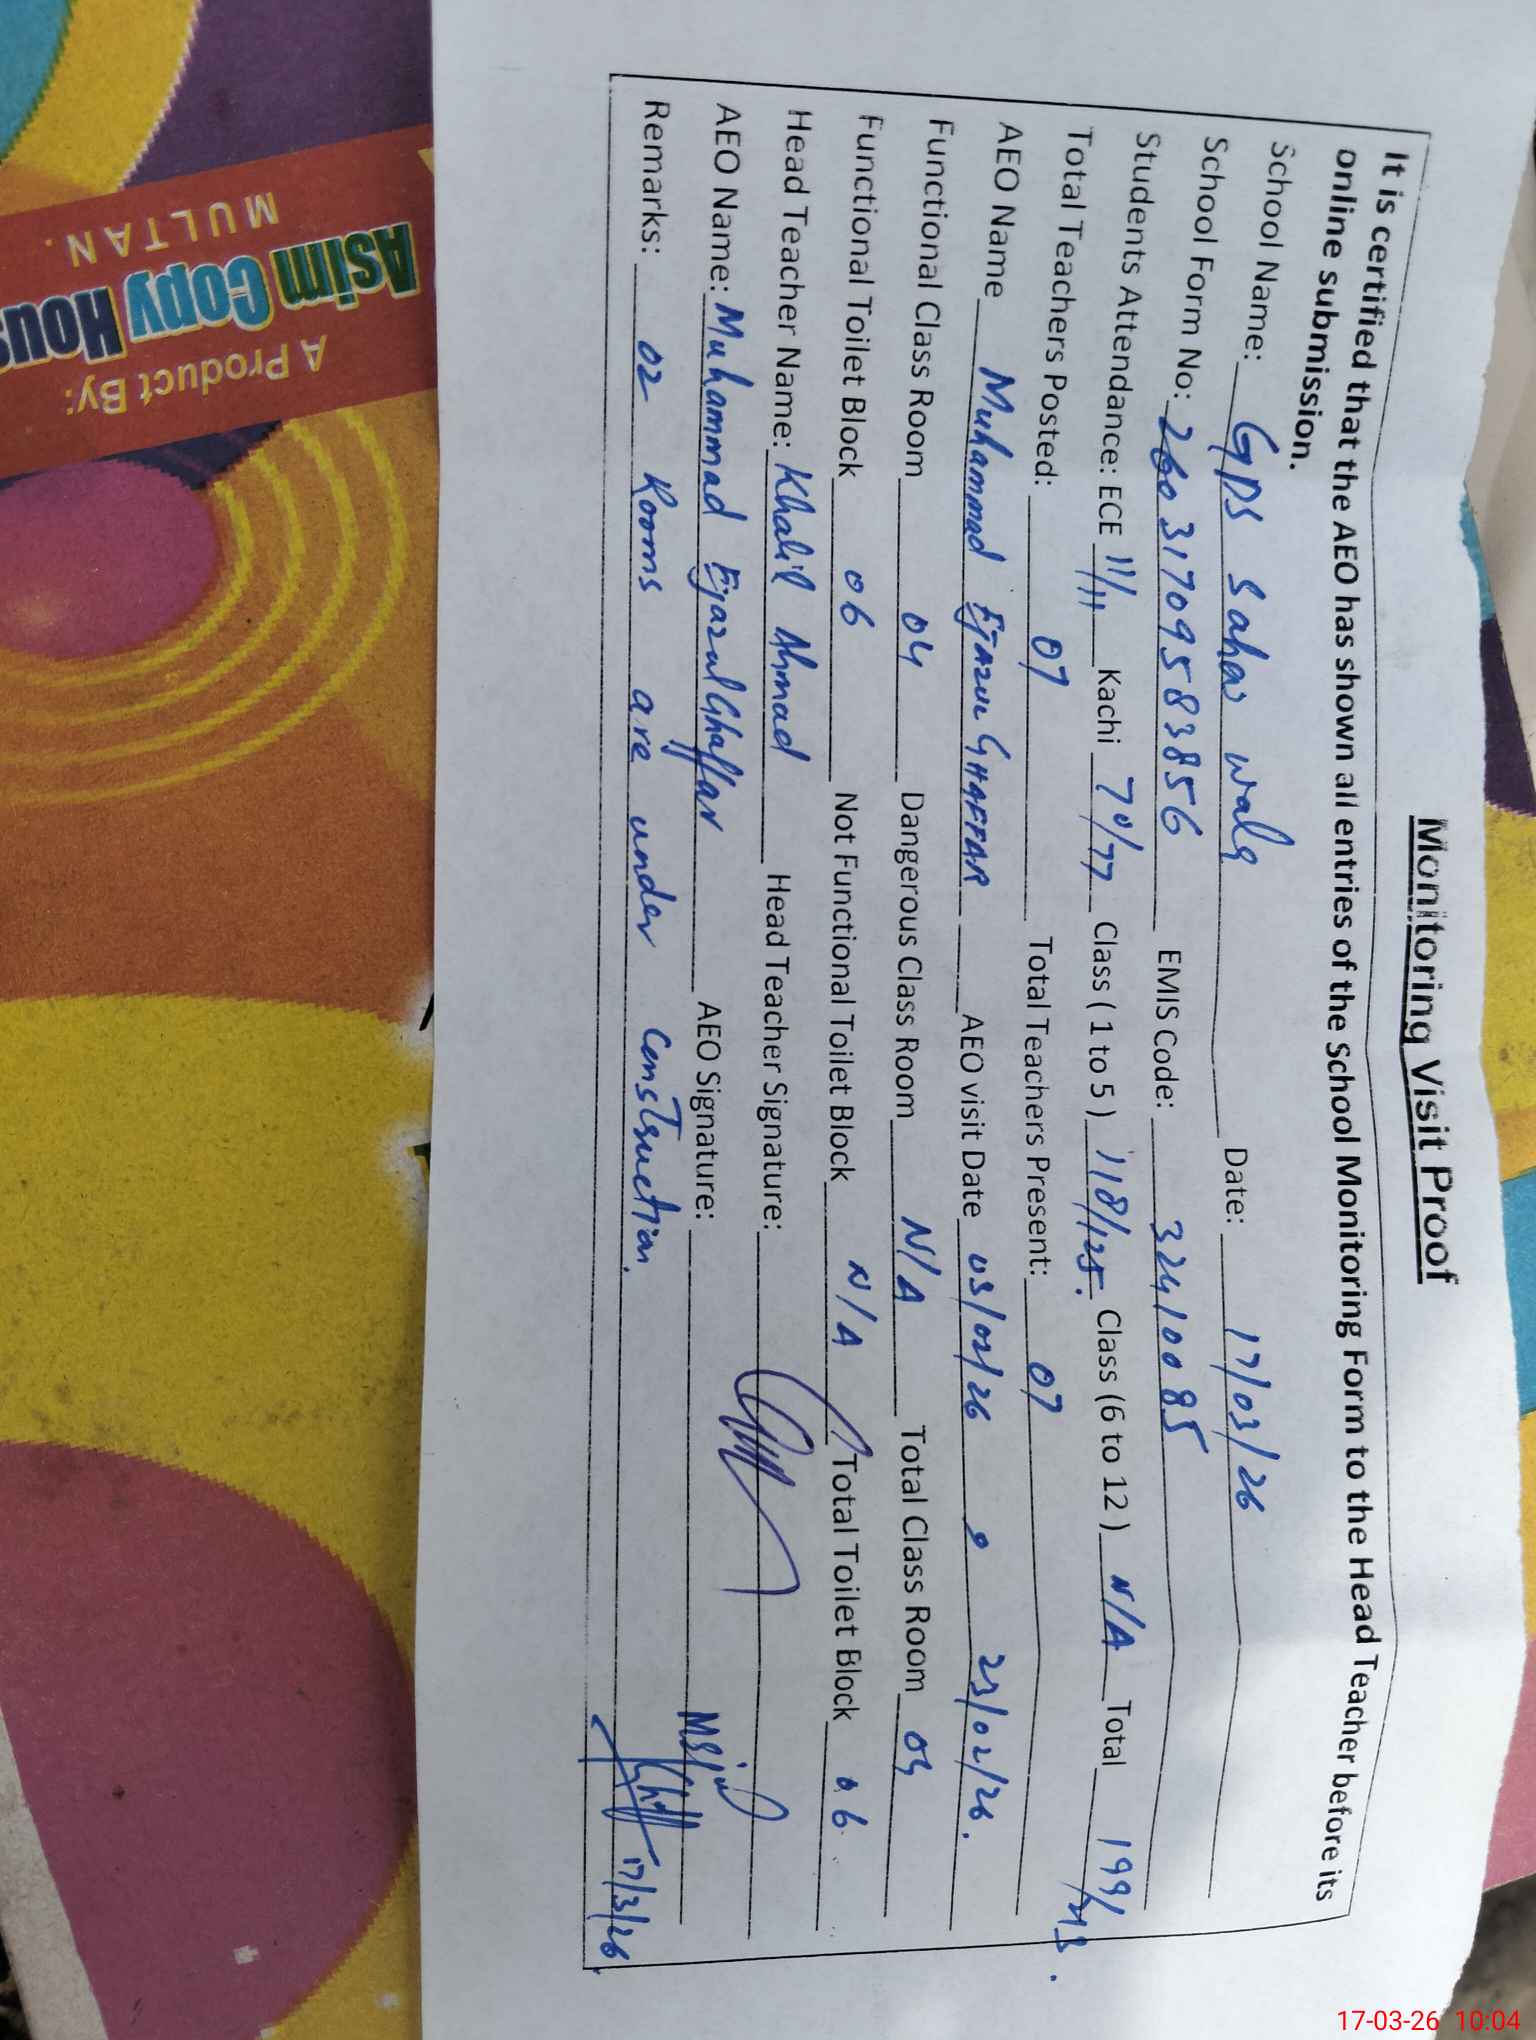 Monitoring Visit Proof
It is certified that the AEO has shown all entries of the School Monitoring Form to the Head Teacher before its
online submission.
School Name: GPS Sahar wala Date: 17/03/26
School Form No: 2603170958 3856 EMIS Code: 32410085
Students Attendance: ECE 11/11 Kachi 70/77 Class ( 1 to 5 ) 118/125. Class (6 to 12 ) N/A Total 199/213.
Total Teachers Posted: 07 Total Teachers Present: 07
AEO Name Muhammad Ejazul GHAFFAR AEO visit Date 03/02/26 , 23/02/26.
Functional Class Room 04 Dangerous Class Room N/A Total Class Room 04
Functional Toilet Block 06 Not Functional Toilet Block N/A Total Toilet Block 06.
Head Teacher Name: Khalil Ahmad Head Teacher Signature:
AEO Name: Muhammad Ejazul Ghaffar AEO Signature:
Remarks: 02 Rooms are under Construction.
17/3/26
A Product By:
Asim Copy Hous
MULTAN.
17-03-26 10:04